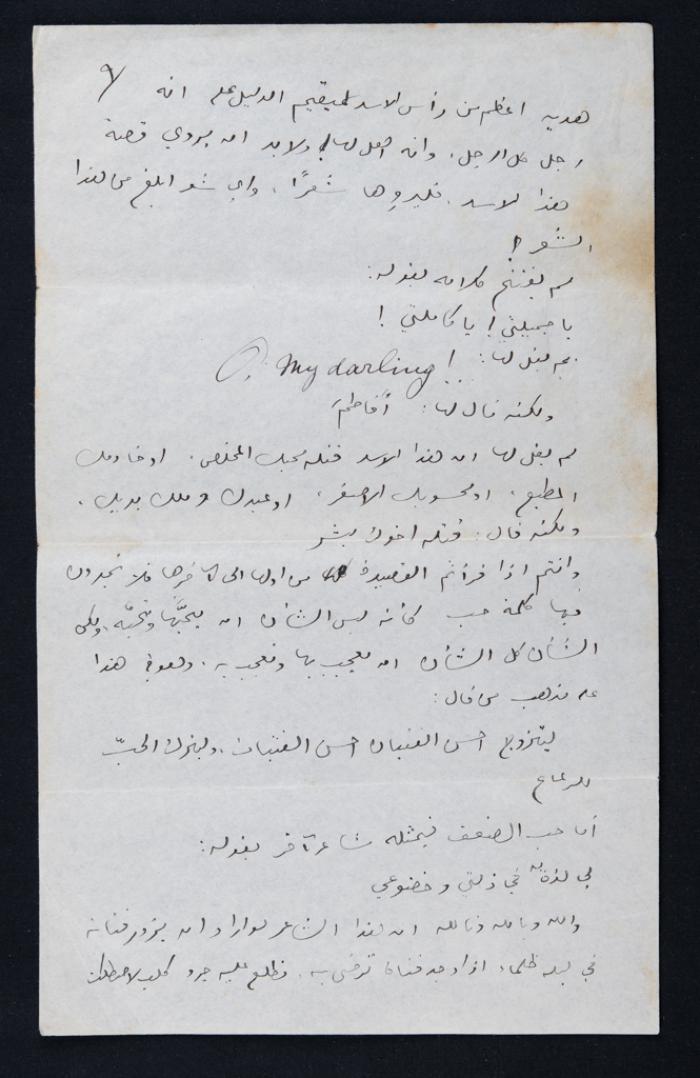 ٩
هدية اعظم من رأس الاسد ليقيم الدليل على انه
رجل كل الرجل. وانه اهل لها! ولا بد ان يروي قصة
هذا الاسد. فليروها شعرًا، واي شعر ابلغ من هذا
الشعر؟!
لم يفتتح كلامه بقوله:
يا جميلتي! يا كاملتي!
لم يقل لها: O, My darling!
ولكنه قال لها: أفاطم
لم يقل لها ان هذا الاسد قتله محبك المخلص. او خادمك
المطيع، او محسوبك الاصغر، او عبدك وملك يديك.
ولكنه قال: قتله اخوك بشر
وانتم اذا قرأتم القصيدة من اولها الى آخرها فلا تجدون
فيها كلمة حب كأنه ليس الشأن ان يحبَّها وتحبّه، ولكن
الشأن كل الشأن ان يعجب بها وتعجب به. وهو في هذا
على مذهب من قال:
ليتزوج احسن الفتيان احسن الفتيات، وليترك الحبّ
للرعاع
أما حب الضعف فيمثله شاعر آخر بقوله:
لي لذة في ذلتي وخضوعي
والله وبالله وتالله ان هذا الشاعر لو اراد ان يزور فتاته
في ليلة ظلماء، اذا وجد فتاة ترضى به، فطلع عليه جرو كلب